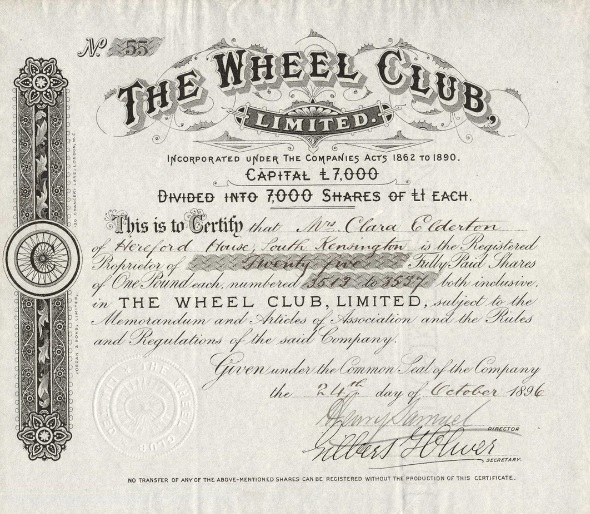 No. 55
THE WHEEL CLUB,
LIMITED.
INCORPORATED UNDER THE COMPANIES ACTS 1862 TO 1890.
CAPITAL £7,000
DIVIDED INTO 7,000 SHARES OF £1 EACH.
This is to Certify that Mrs Clara Elderton
of Hereford House, South Kensington is the Registered
Proprietor of Twenty five Fully Paid Shares
of One Pound each, numbered 3513 to 3537 both inclusive,
in THE WHEEL CLUB, LIMITED, subject to the
Memorandum and Articles of Association and the Rules
and Regulations of the said Company.
Given under the Common Seal of the Company
the 24th day of October 1896
Henry Samuel
DIRECTOR
Gilbert G Oliver
SECRETARY.
NO TRANSFER OF ANY OF THE ABOVE-MENTIONED SHARES CAN BE REGISTERED WITHOUT THE PRODUCTION OF THIS CERTIFICATE.